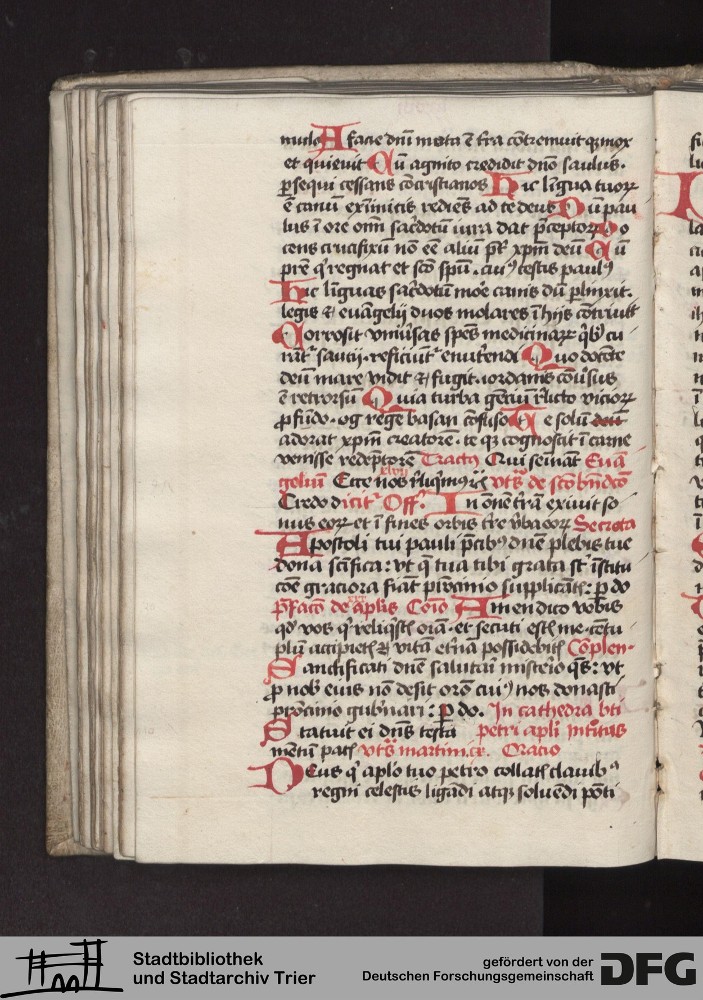 mulo A facie dni mota ē t̄ra cōtremuit qꝫ mox
et quieuit Cū agnito credidit dno saulus.
ꝑsequi cessans cōcristianos Hic līgua tuoꝝ
ē canū ex īimicis rediēs ad te deus Dū pau
lus ī ore om̄ sac̄dotū iura dat p̄ceptoꝝ Do
cens crucifixū nō eē aliū p̄ꝉ xpm̄ deū Cū
pr̄e qͥ regnat et sc̄o spū. cuiꝰ testis paulꝰ
Hic līguas sac̄dotū more canis dū plīxit.
legis ⁊ euāgelij duos molares ī hijs cōtriuit
Corrosit vniūsas spēs medicinaꝝ qͥbꝰ cu
rāt saucij. reficiūt enut̄endi Quo docēte
deū mare vidit ⁊ fugit. iordanis cōūsus
ē retrorsū Quia turba gētiū rͤlicto vicioꝝ
ꝓfūdo. og rege basan cōfuso Te solū deū
adorat xpm̄ creatorē. te qꝫ cognoscit ī carne
venisse redēptorē Tractꝰ Qui seīnāt Euā
geliū Ecce nos rͤliqͥmꝰ vt sͣ de sco bn̄dcō
Credo dicit Off. In om̄ē t̄rā exiuit so
nus eoꝝ et ī fines orbis t̄re v̄ba eoꝝ Secreta
Apostoli tui pauli p̄cibꝰ dn̄e plebis tue
dona sc̄ifica: vt qͣ tua tibi grata st̄ īstitu
cōe graciora fiāt pr̄ocinio supplicāt̄: ꝑ do
p̄facō de aplis Cōio Amen dico vobis
qd̓ vos qͥ reliqͥstis om̄ia. et secuti estis me. cētu
plū accipietis ⁊ vitā et̄nā possidebitis Cōplen
Sanctificati dn̄e salutari misterio qͥs: vt
ꝓ nob̓ eius nō desit orō cuiꝰ nos donasti
pr̄ocinio gub̓nari: ꝑ do. In cathedra bt̄i
Statuit ei dn̄s testa petri apli introitus
mētū pacꝭ vt sͣ martini. Oratio
Deus qͥ aplo tuo petro collatis clauibꝰ
regni celestis ligādi atqꝫ soluēdi pōti
Stadtbibliothek
und Stadtarchiv Trier
gefördert von der
Deutschen Forschungsgemeinschaft
DFG